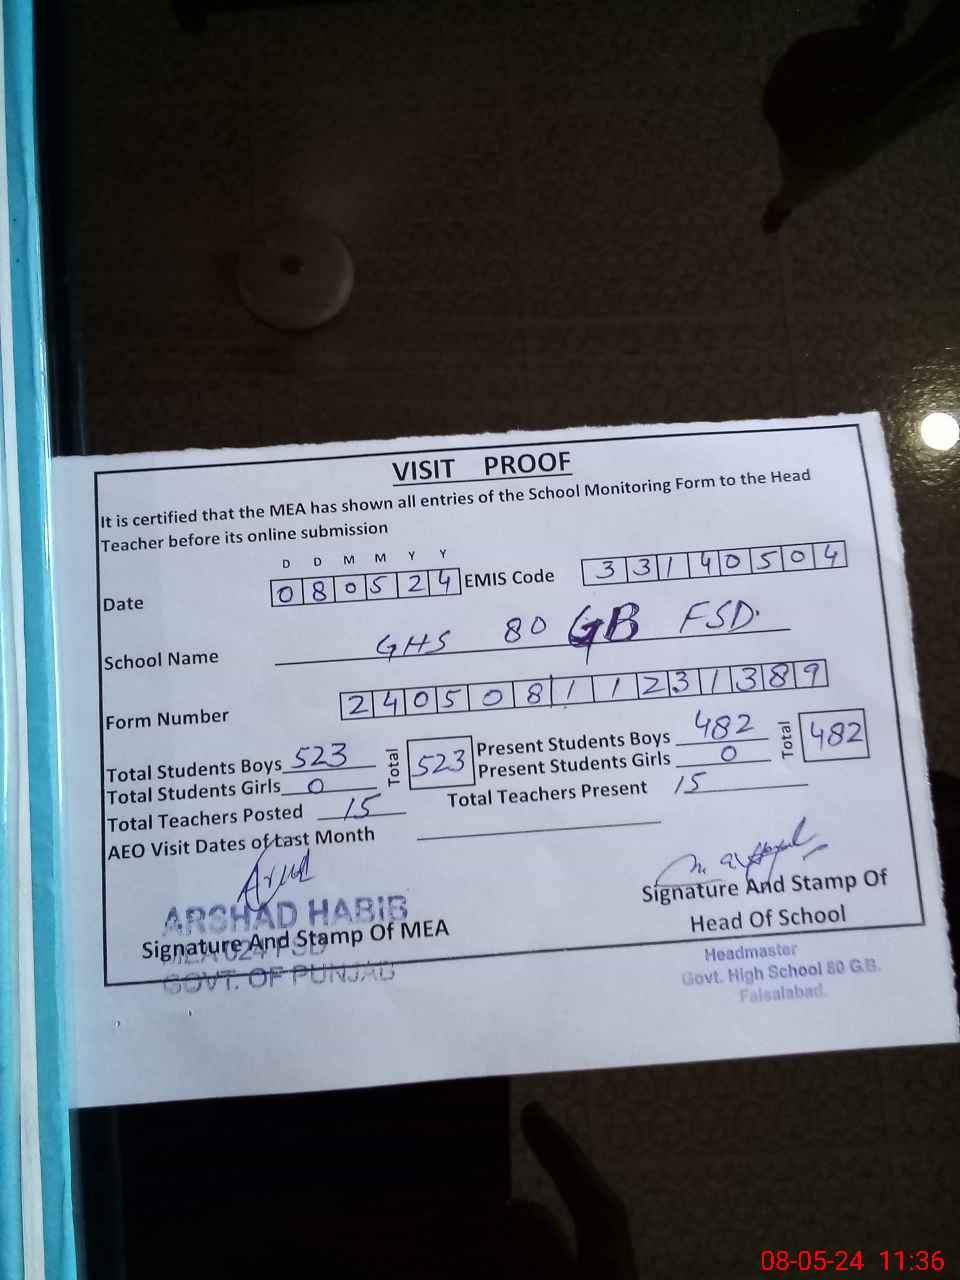 VISIT PROOF
It is certified that the MEA has shown all entries of the School Monitoring Form to the Head
Teacher before its online submission
D D M M Y Y
Date 080524 EMIS Code 33140504
School Name GHS 80 GB FSD.
Form Number 24050811231389
Total Students Boys 523 Total 523 Present Students Boys 482 Total 482
Total Students Girls 0 Present Students Girls 0
Total Teachers Posted 15 Total Teachers Present 15
AEO Visit Dates of Last Month
ARSHAD HABIB
Signature And Stamp Of MEA
MEA 024 FSD
GOVT. OF PUNJAB
Signature And Stamp Of
Head Of School
Headmaster
Govt. High School 80 G.B.
Faisalabad.
08-05-24 11:36